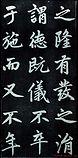 之陸有發之
謂德既儀不卒
于施而又不年